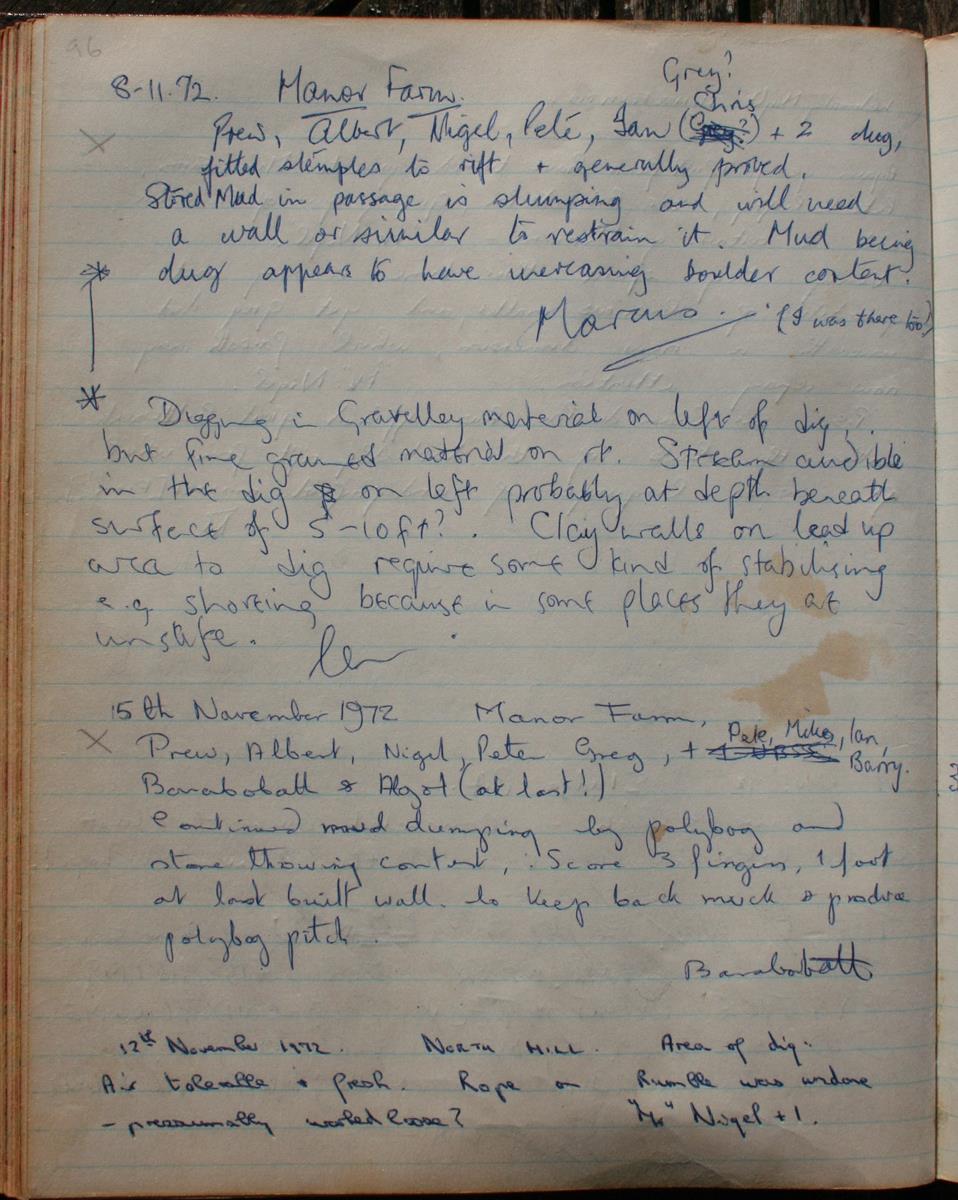 96
Greg?
8-11.72. Manor Farm.
Chris
Prew, Albert, Nigel, Pete, Ian () + 2 dug,
fitted stemples to rift + generally probed.
Stored Mud in passage is slumping and will need
a wall or similar to restrain it. Mud being
* dug appears to have increasing boulder content.
Marcus. (I was there too!)
* Digging in Gravelley material on left of dig,
but fine grained material on rt. Stream audible
in the dig on left probably at depth beneath
surface of 5-10ft?. Clay walls on lead up
area to dig require some kind of stabilising
e.g. shoreing because in some places they at
unsafe.
Ian
15th November 1972 Manor Farm,
Pete, Mike, Ian,
Prew, Albert, Nigel, Peter Greg, + Barry.
Barabobatt & (at last!)
Continued mud dumping by polybog and
stone throwing contest, Score 3 fingers, 1 foot
at last built wall. to keep back muck & produce
polybog pitch.
Barabobatt
12th November 1972. North Hill. Area of dig:
Air tolerable + fresh. Rope on Rumble was undone
- presumably worked loose? Nigel + 1.